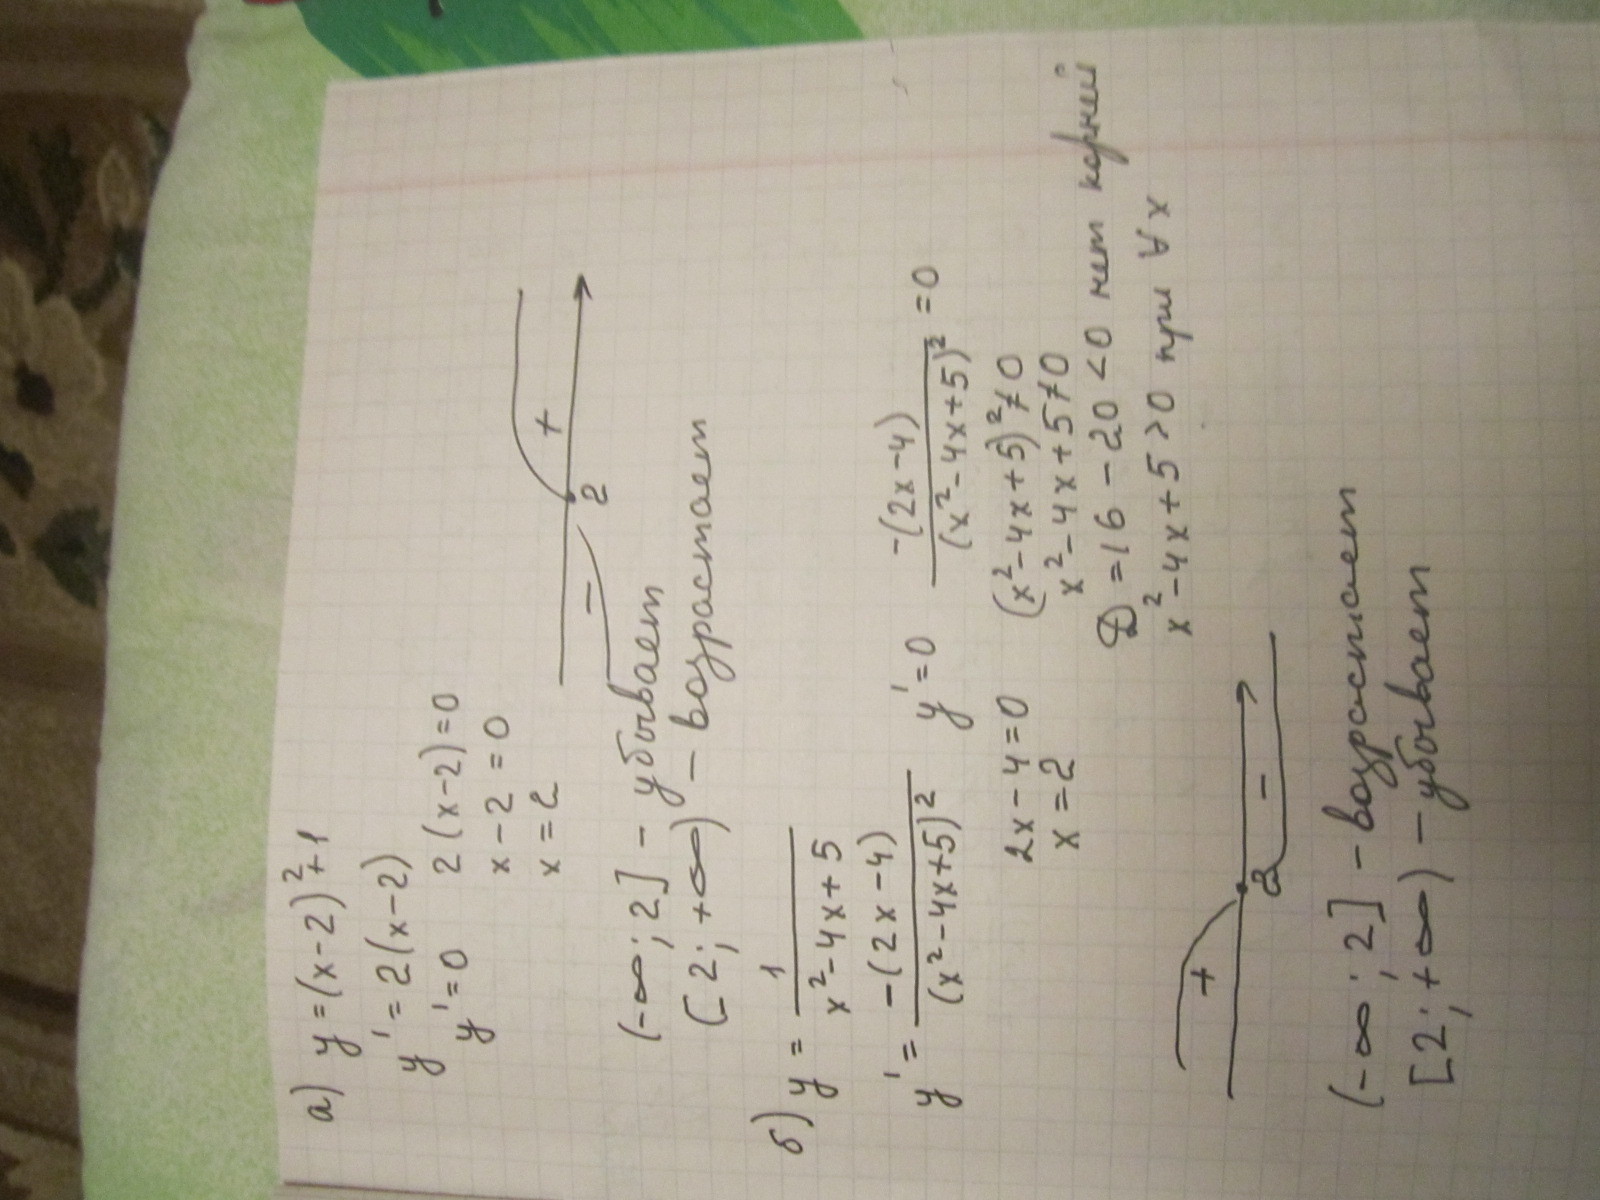 а) y = (x-2)² + 1
y' = 2(x-2)
y' = 0 2(x-2) = 0
x - 2 = 0
x = 2
- + 2
(-∞; 2] - убывает
[2; +∞) - возрастает
б) y = 1/(x² - 4x + 5)
y' = -(2x-4)/(x² - 4x + 5)² y' = 0 -(2x-4)/(x² - 4x + 5)² = 0
2x - 4 = 0 (x² - 4x + 5)² ≠ 0
x = 2 x² - 4x + 5 ≠ 0
D = 16 - 20 < 0 нет корней
x² - 4x + 5 > 0 при ∀ x
+ 2 -
(-∞; 2] - возрастает
[2; +∞) - убывает